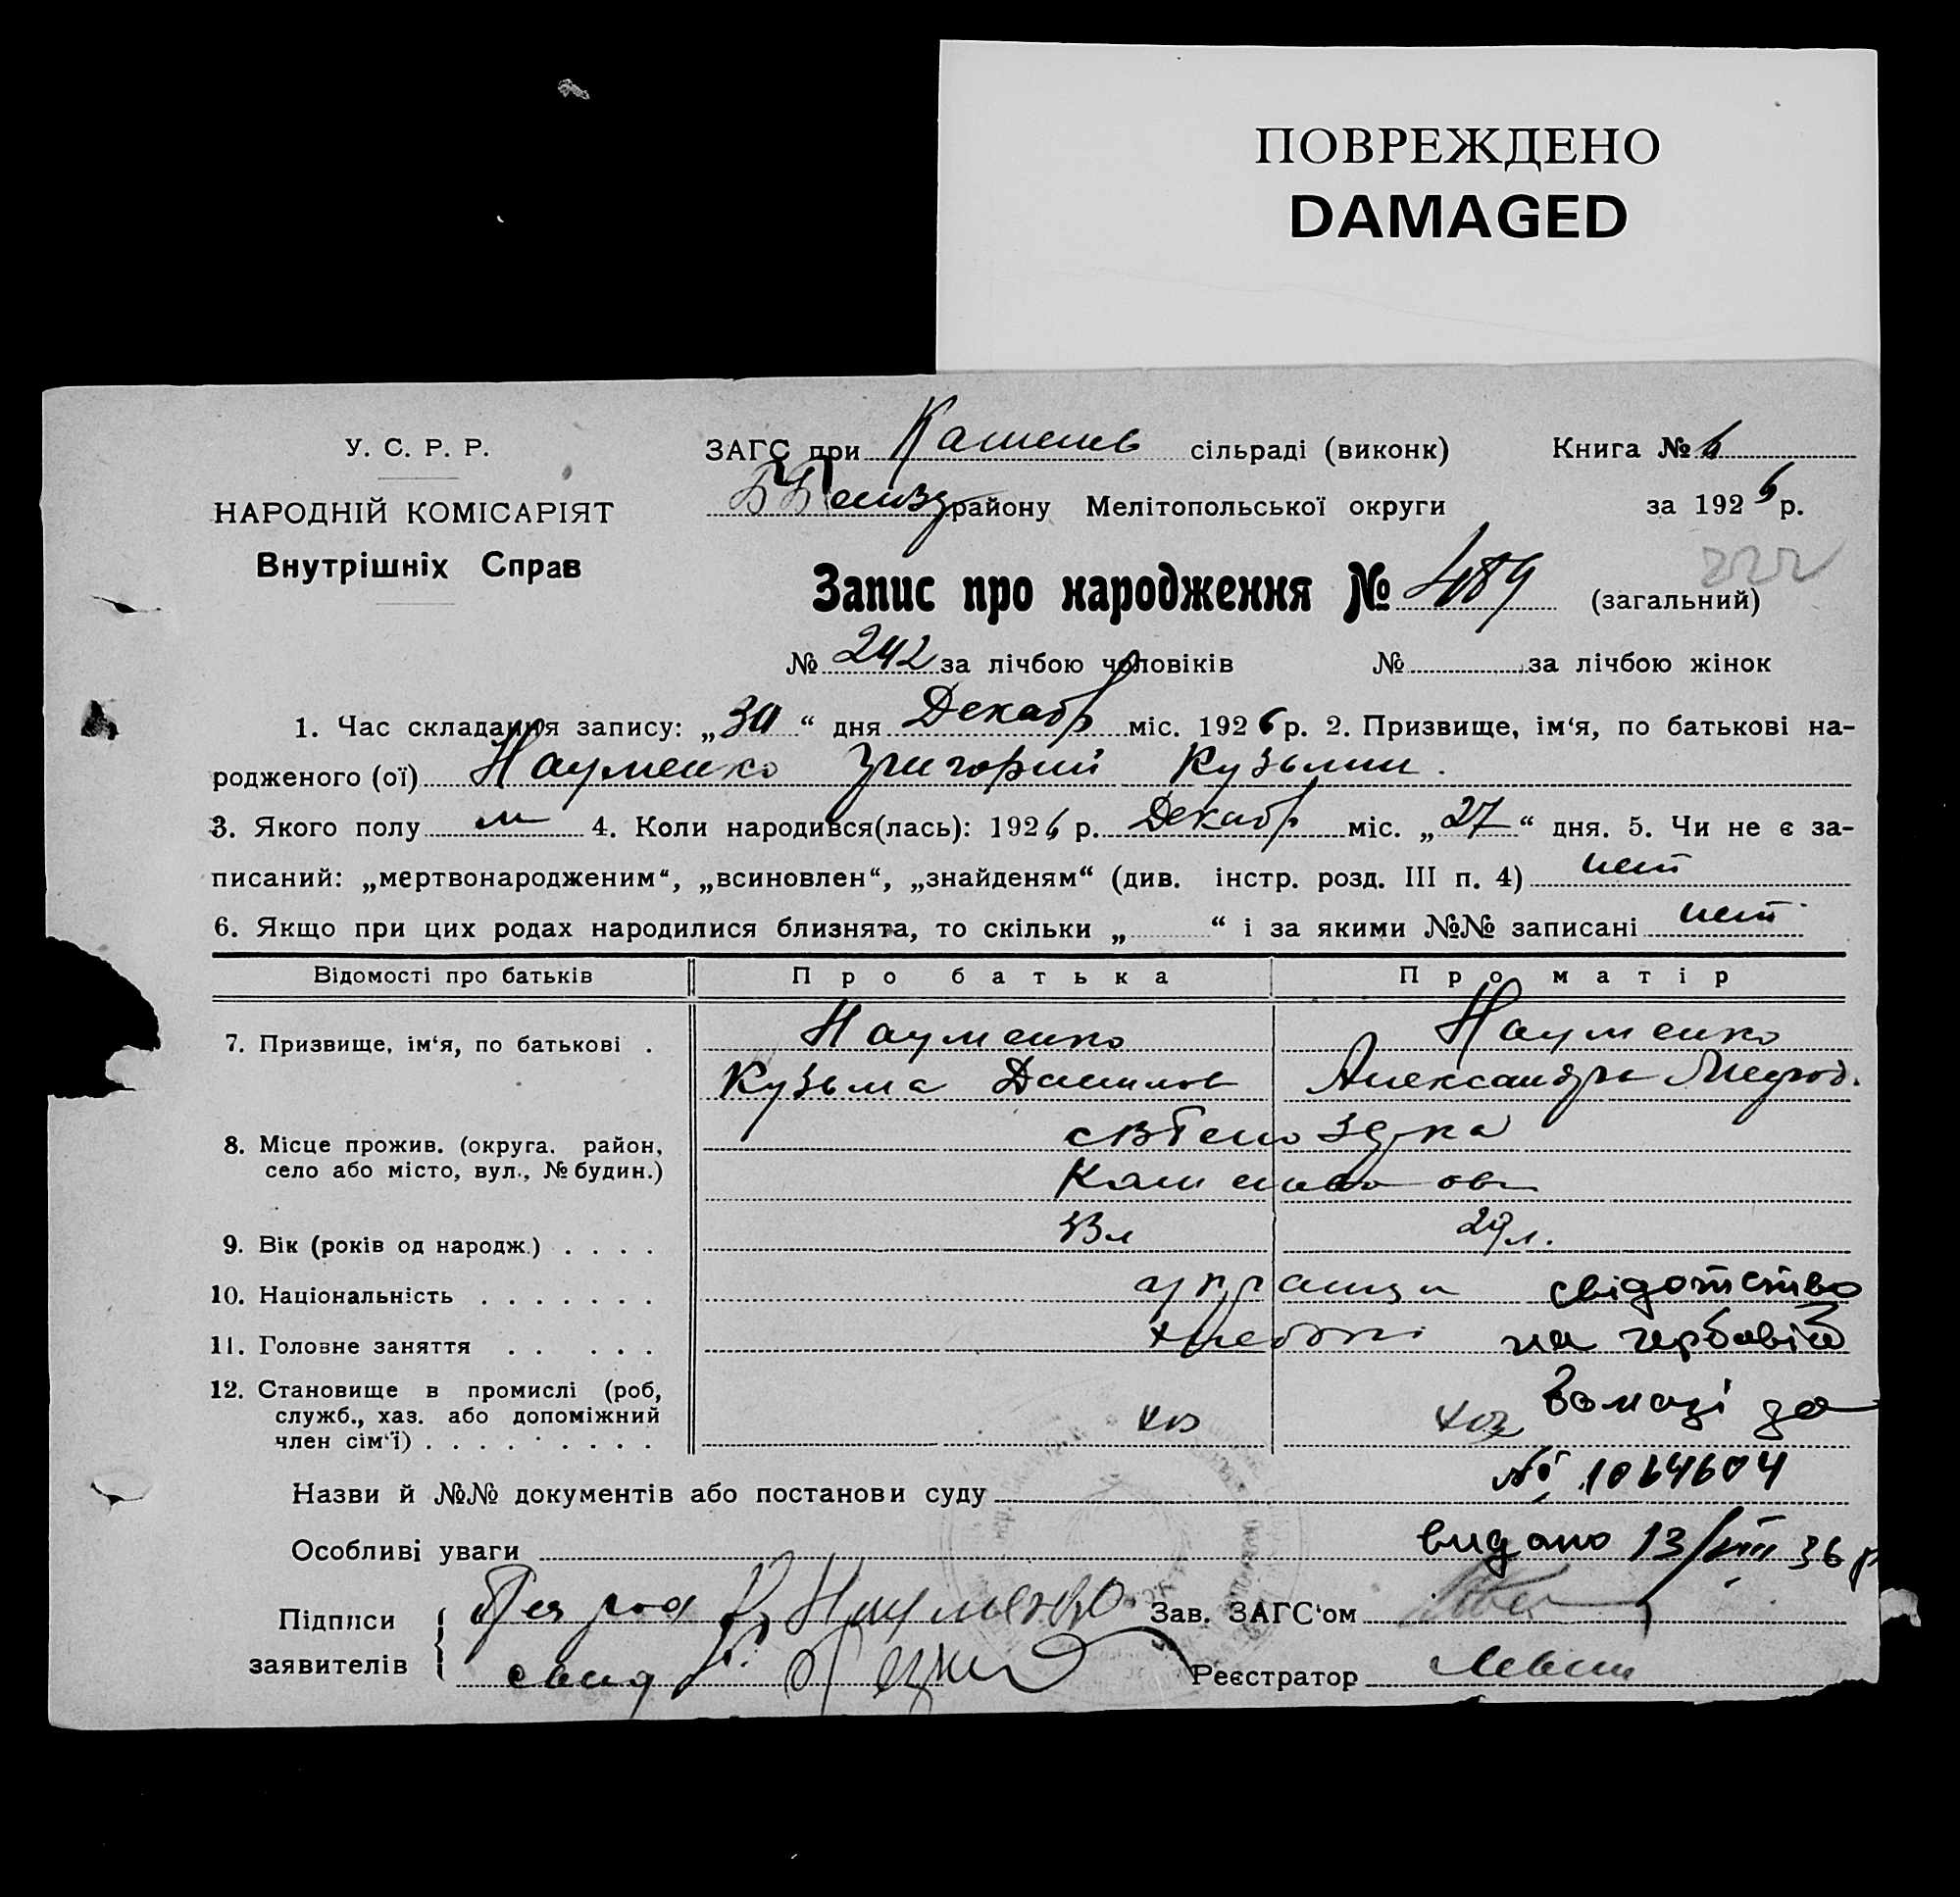 ПОВРЕЖДЕНО
DAMAGED
У. С. Р. Р.
НАРОДНІЙ КОМІСАРІЯТ
Внутрішніх Справ
ЗАГС при Каменев сільраді (виконк) Книга № 6
району Мелітопольської округи за 1926 р.
222
Запис про народження № 489 (загальний)
№ 242 за лічбою чоловіків № за лічбою жінок
1. Час складання запису: „30“ дня Декабр міс. 1926 р. 2. Призвище, ім‘я, по батькові на-
родженого (ої) Науменко Григорий Кузьмич.
3. Якого полу м 4. Коли народився(лась): 1926 р. Декабр міс. „27“ дня. 5. Чи не є за-
писаний: „мертвонародженим“, „всиновлен“, „знайденям“ (див. інстр. розд. III п. 4) нет
6. Якщо при цих родах народилися близнята, то скільки „ “ і за якими №№ записані нет
Відомості про батьків Про батька Про матір
7. Призвище, ім‘я, по батькові . Науменко Науменко
Кузьма Данилов Александра
8. Місце прожив. (округа. район,
село або місто, вул., № будин.)
9. Вік (років од народж.) . . . . 33 л 29 л.
10. Національність . . . . . . . украинц свідотство
11. Головне заняття . . . . . хлебор на гербовій
12. Становище в промислі (роб,
служб., хаз. або допоміжний
член сім‘ї) . . . . . . . . . хоз хоз бомазі за
№ 1064604
Назви й №№ документів або постанови суду
Особливі уваги видано 13/VIII 36 р
Підписи
заявителів
Науменко
свид
Зав. ЗАГС‘ом
Реєстратор Левин